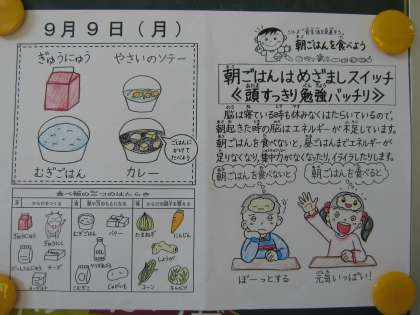 9月9日(月)
ぎゅうにゅう
やさいのソテー
むぎごはん
カレー
ごはんに
かけて
たべよう
食べ物の三つのはたらき
ぎゅうにゅう
チーズ
むぎごはん
バター
じゃがいも
たまねぎ
にんじん
しょうが
コーン
朝ごはんを食べよう
朝ごはんはめざましスイッチ
《頭すっきり勉強バッチリ》
脳は寝ている時も休みなくはたらいているので、
朝起きた時の脳はエネルギーが不足しています。
朝ごはんを食べないと、昼ごはんまでエネルギーが
足りなくなり、集中力がなくなったり、イライラしたりします。
朝ごはんを食べないと
朝ごはんを食べると
ぼーっとする
元気いっぱい!